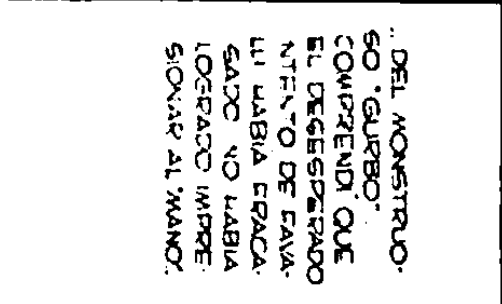 .. DEL MONSTRUO-
SO "GURBO".
COMPRENDI QUE
EL DESESPERADO
INTENTO DE FAVA-
LLI HABIA FRACA-
SADO. NO HABIA
LOGRADO IMPRE-
SIONAR AL "MANO".